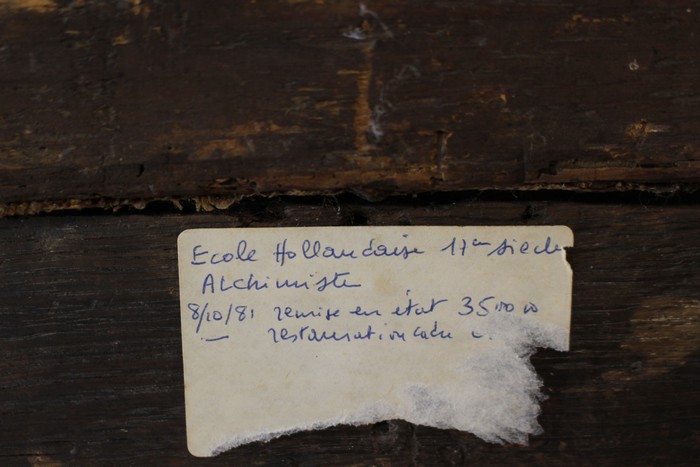 Ecole Hollandaise 17em siecle
Alchimiste
8/10/81 remise en état 35
— restauration cadre